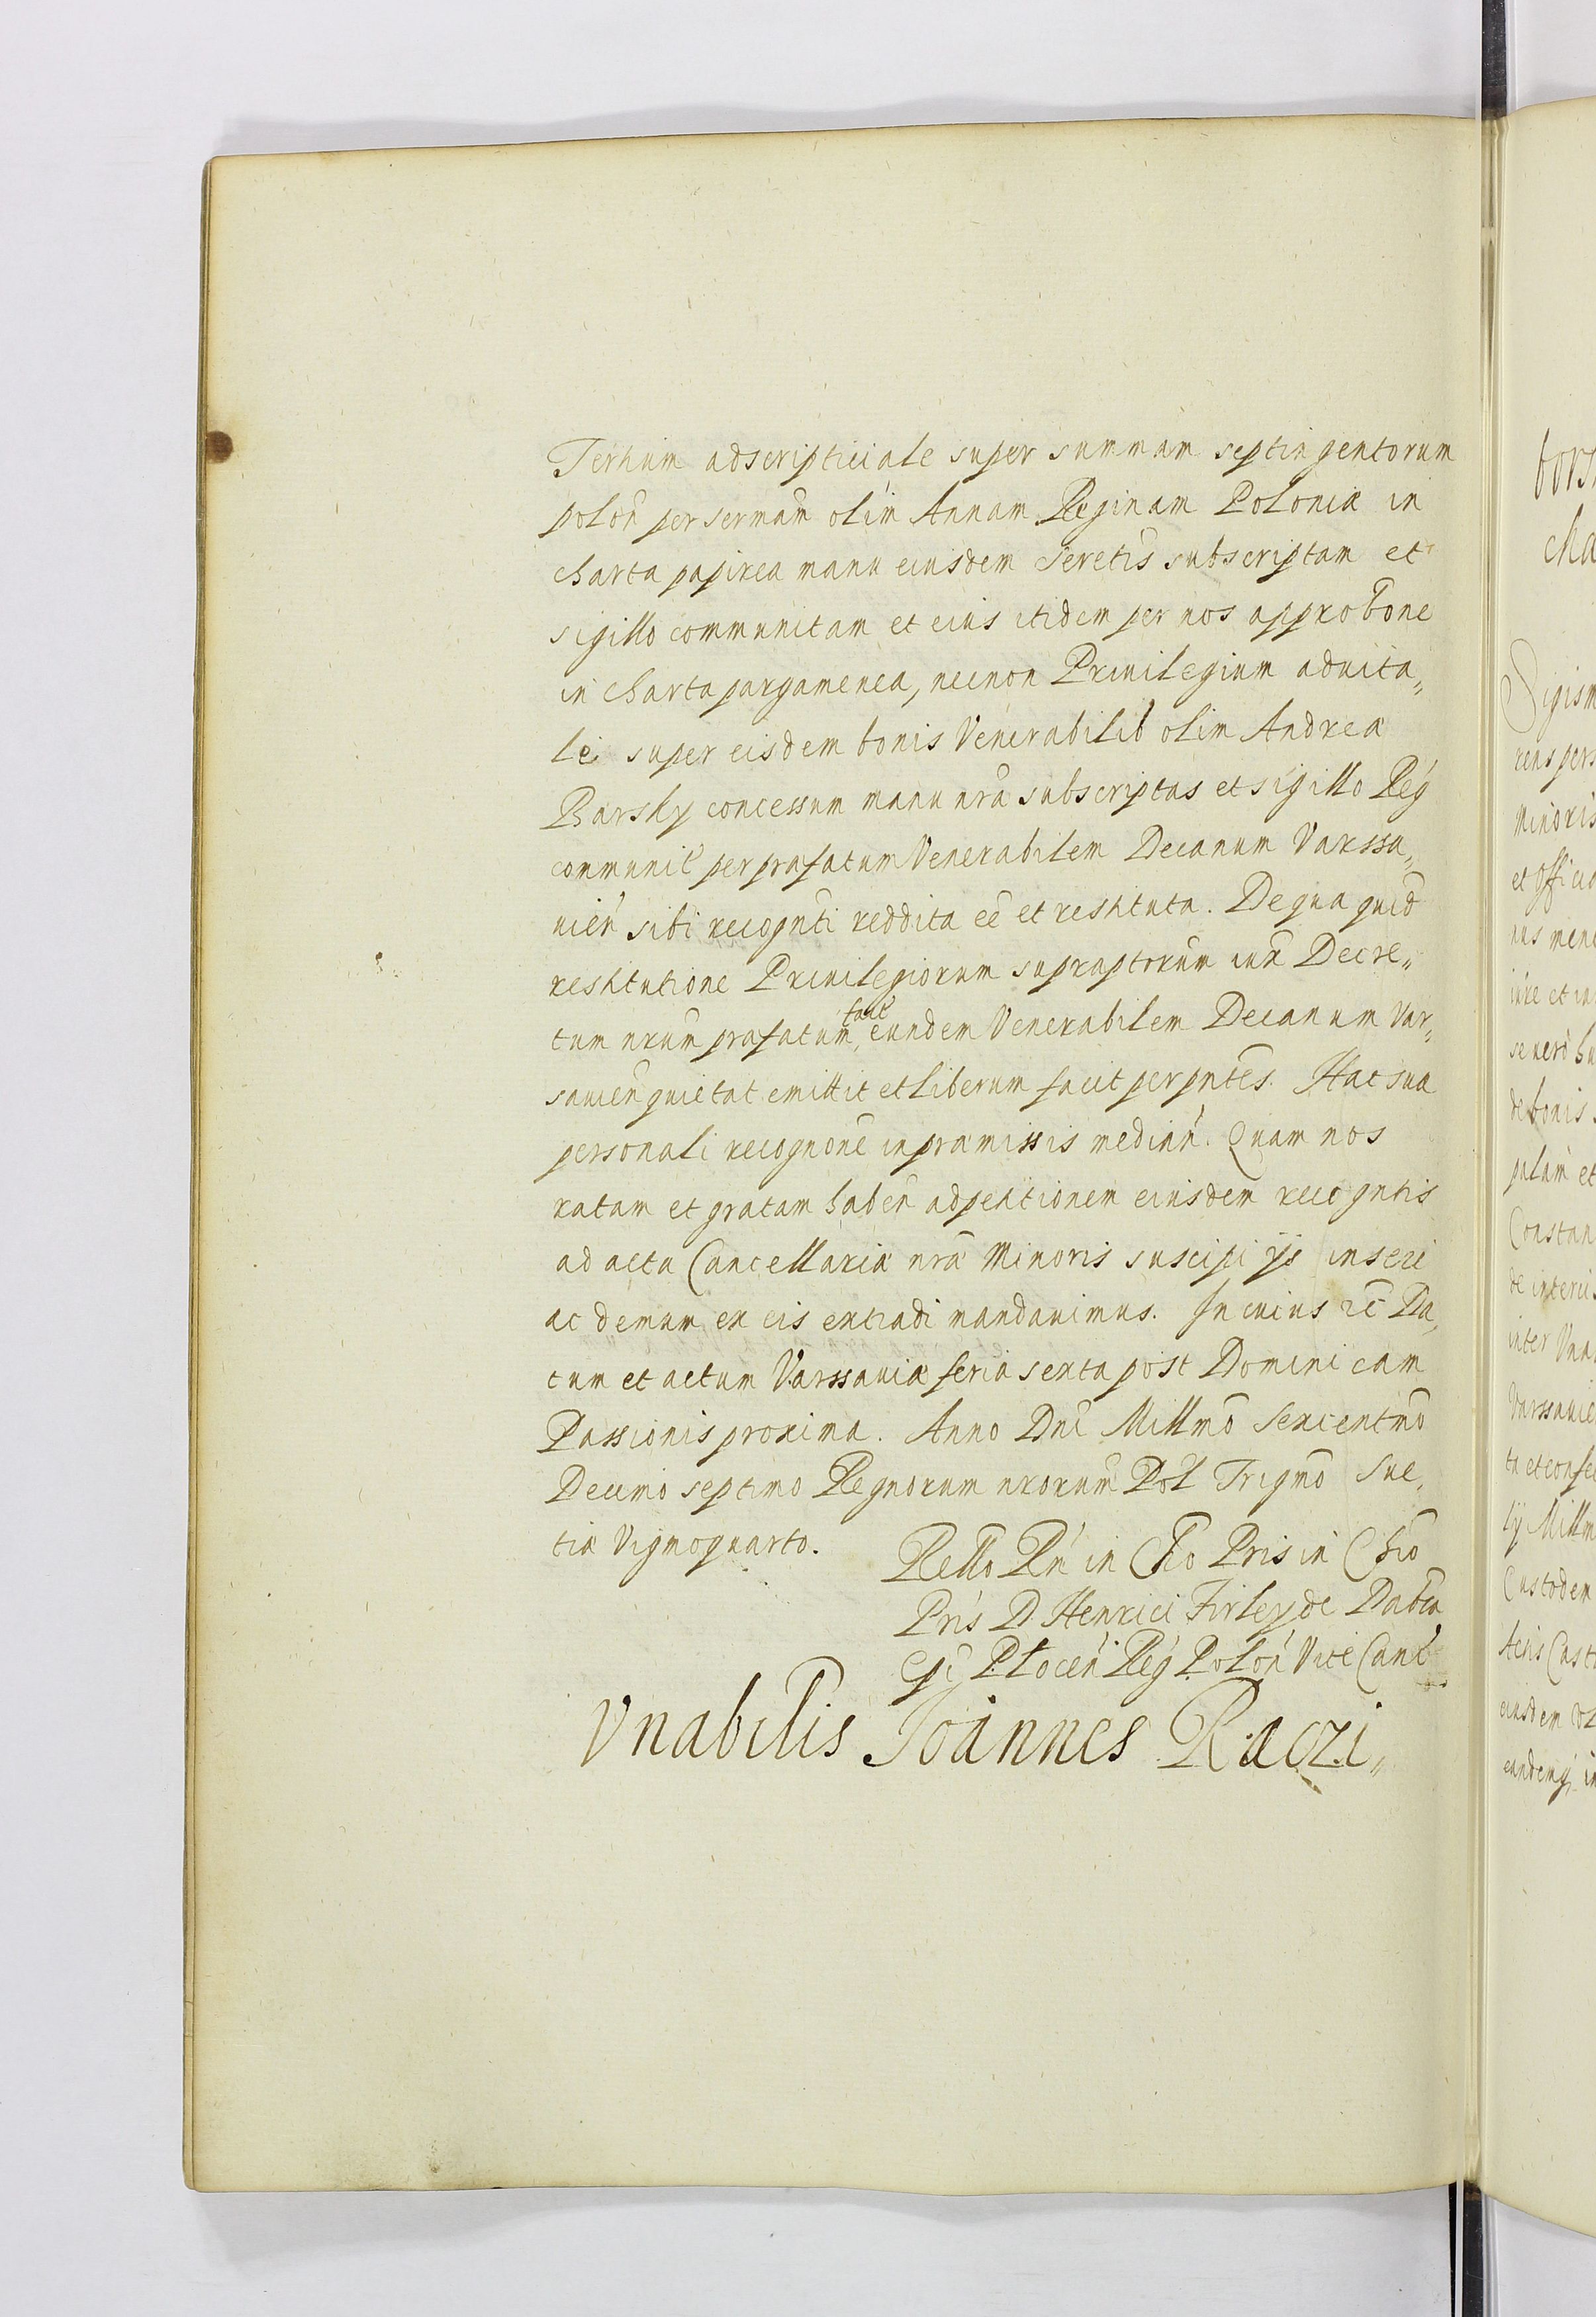 Tertium adscripticiale super summam septingentorum
polon̄ per sermam̄ olim Annam Reginam Poloniæ in
charta papirea manu eiusdem Seretis̄ subscriptam et
sigillo communitam et eius itidem per nos approbōne
in charta pargamenea, necnon Priuilegium aduita„
le super eisdem bonis Venerabilib olim Andreæ
Barsky concessum manu nrā subscriptas et sigillo Reg̃
communit̃ per præfatum Venerabilem Decanum Varssa„
uień sibi recognti reddita eē et restituta. De qua quid̄
restitutione Priuilegiorum supraptorum̄ iux̄ Decre„
tum nrum̄ præfatum, tańt eundem Venerabilem Decanum Var„
sauień quietat emittit et liberum facit per pntēs. Hac sua
personali recognōne in præmissis mediań. Quam nos
ratam et gratam habeń ad petitionem eiusdem recogntis
ad acta Cancellariæ nræ Minoris suscipi ijs inseri
ac demum ex eis extradi mandauimus. In cuius rē Da„
tum et actum Varssauiæ feria sexta post Dominicam
Passionis proxima. Anno Dnī Millmō Sexcentmō
Decimo septimo Regnorum nrorum̄ Pol̄ Trigmō Sue„
tiæ Vigmoquarto.
Rello Rń in Chō Pris in Chō
Prís D. Henrici Firley de Dabro
Epī Płoceń Reg̃ Poloń Vice Canć
Vnabilis Joannes Raczi„
bors
cha
Sigism
rens pers
Minoris
et Officio
nus mene
iure et in
se uero hu
de bonis
palam et
Constan
de interci
inter Vna
Varssauie
ta et confe
lij Millm
Custodem
Actis Cast
eiusdem
eundemq̃ in